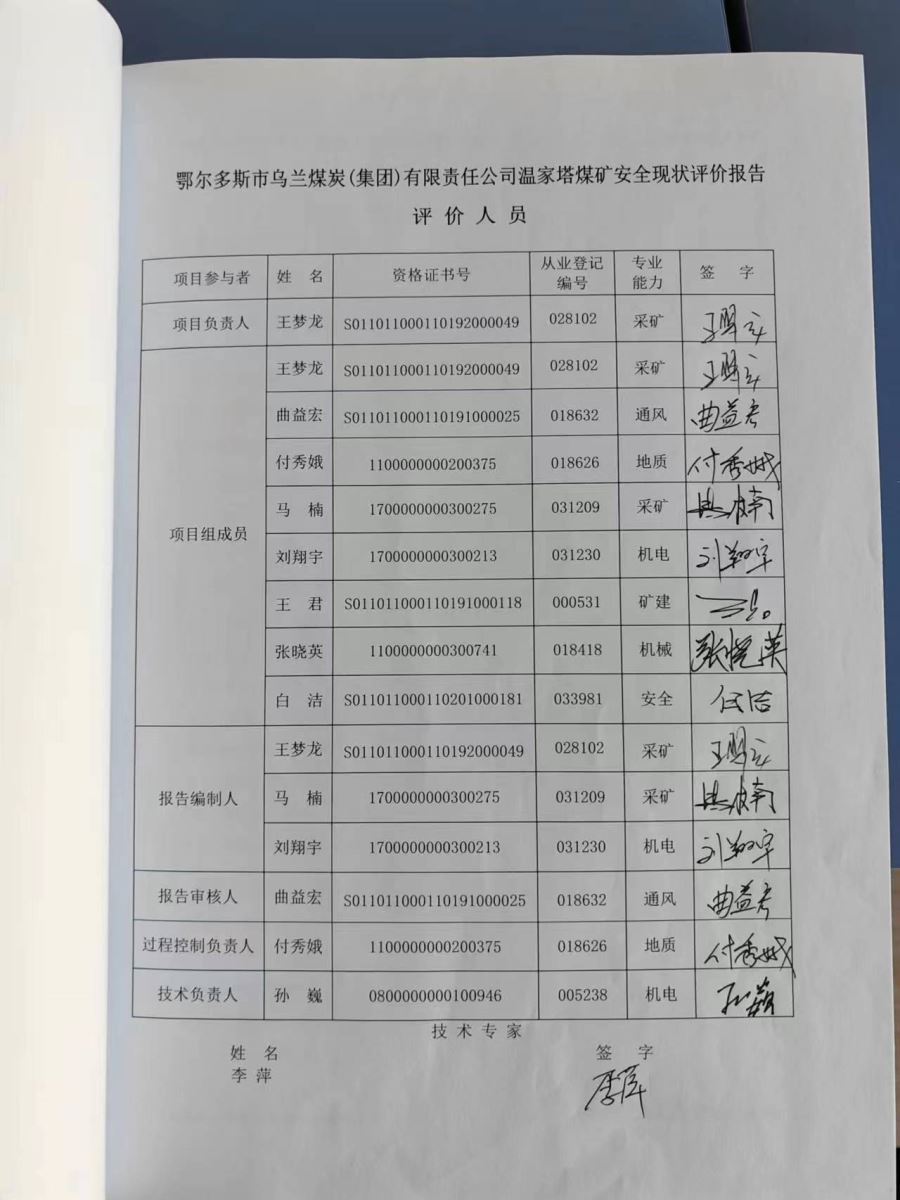 鄂尔多斯市乌兰煤炭(集团)有限责任公司温家塔煤矿安全现状评价报告
评价人员
项目参与者 姓名 资格证书号 从业登记编号 专业能力 签字
项目负责人 王梦龙 S011011000110192000049 028102 采矿
项目组成员 王梦龙 S011011000110192000049 028102 采矿
曲益宏 S011011000110191000025 018632 通风 曲益宏
付秀娥 1100000000200375 018626 地质 付秀娥
马楠 1700000000300275 031209 采矿 马楠
刘翔宇 1700000000300213 031230 机电 刘翔宇
王君 S011011000110191000118 000531 矿建
张晓英 1100000000300741 018418 机械 张晓英
白洁 S011011000110201000181 033981 安全 白洁
报告编制人 王梦龙 S011011000110192000049 028102 采矿
马楠 1700000000300275 031209 采矿 马楠
刘翔宇 1700000000300213 031230 机电 刘翔宇
报告审核人 曲益宏 S011011000110191000025 018632 通风 曲益宏
过程控制负责人 付秀娥 1100000000200375 018626 地质 付秀娥
技术负责人 孙巍 0800000000100946 005238 机电 孙巍
技术专家
姓名 签字
李萍